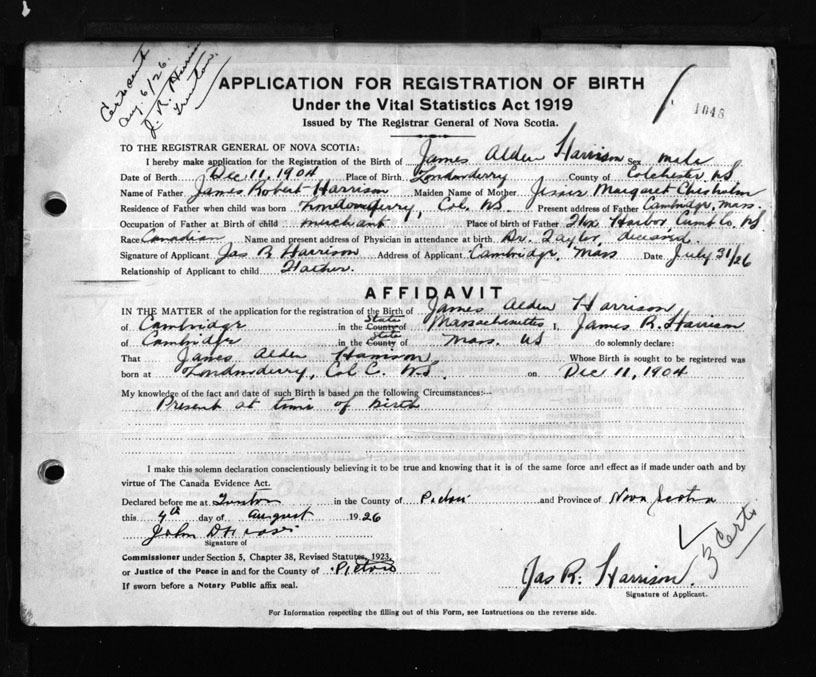 Cert sent
Aug. 6/26.
J. R. Harrison
Trenton
APPLICATION FOR REGISTRATION OF BIRTH
Under the Vital Statistics Act 1919
1048
Issued by The Registrar General of Nova Scotia.
TO THE REGISTRAR GENERAL OF NOVA SCOTIA:
I hereby make application for the Registration of the Birth of James Alden Harrison Sex male
Date of Birth Dec 11, 1904 Place of Birth Londonderry County of Colchester, NS
Name of Father James Robert Harrison Maiden Name of Mother Jessie Margaret Chisholm
Residence of Father when child was born Londonderry, Col. NS. Present address of Father Cambridge, Mass.
Occupation of Father at Birth of child merchant Place of birth of Father Harbor, Cumb. Co. NS
Race Canadian Name and present address of Physician in attendance at birth Dr. Taylor, deceased.
Signature of Applicant Jas R Harrison Address of Applicant Cambridge, Mass Date July 31/26
Relationship of Applicant to child Father.
AFFIDAVIT
IN THE MATTER of the application for the registration of the Birth of James Alden Harrison
of Cambridge in the County of State Massachusettes I, James R. Harrison
of Cambridge in the County of State Mass. US do solemnly declare:
That James Alden Harrison Whose Birth is sought to be registered was
born at Londonderry, Col C. NS. on Dec 11, 1904
My knowledge of the fact and date of such Birth is based on the following Circumstances:--
Present at time of Birth
I make this solemn declaration conscientiously believing it to be true and knowing that it is of the same force and effect as if made under oath and by
virtue of The Canada Evidence Act.
Declared before me at Trenton in the County of Pictou and Province of Nova Scotia
this 4th day of August 1926
John D
Signature of
Commissioner under Section 5, Chapter 38, Revised Statutes, 1923,
or Justice of the Peace in and for the County of Pictou
If sworn before a Notary Public affix seal.
3 Certs.
Jas R. Harrison.
Signature of Applicant.
For Information respecting the filling out of this Form, see Instructions on the reverse side.